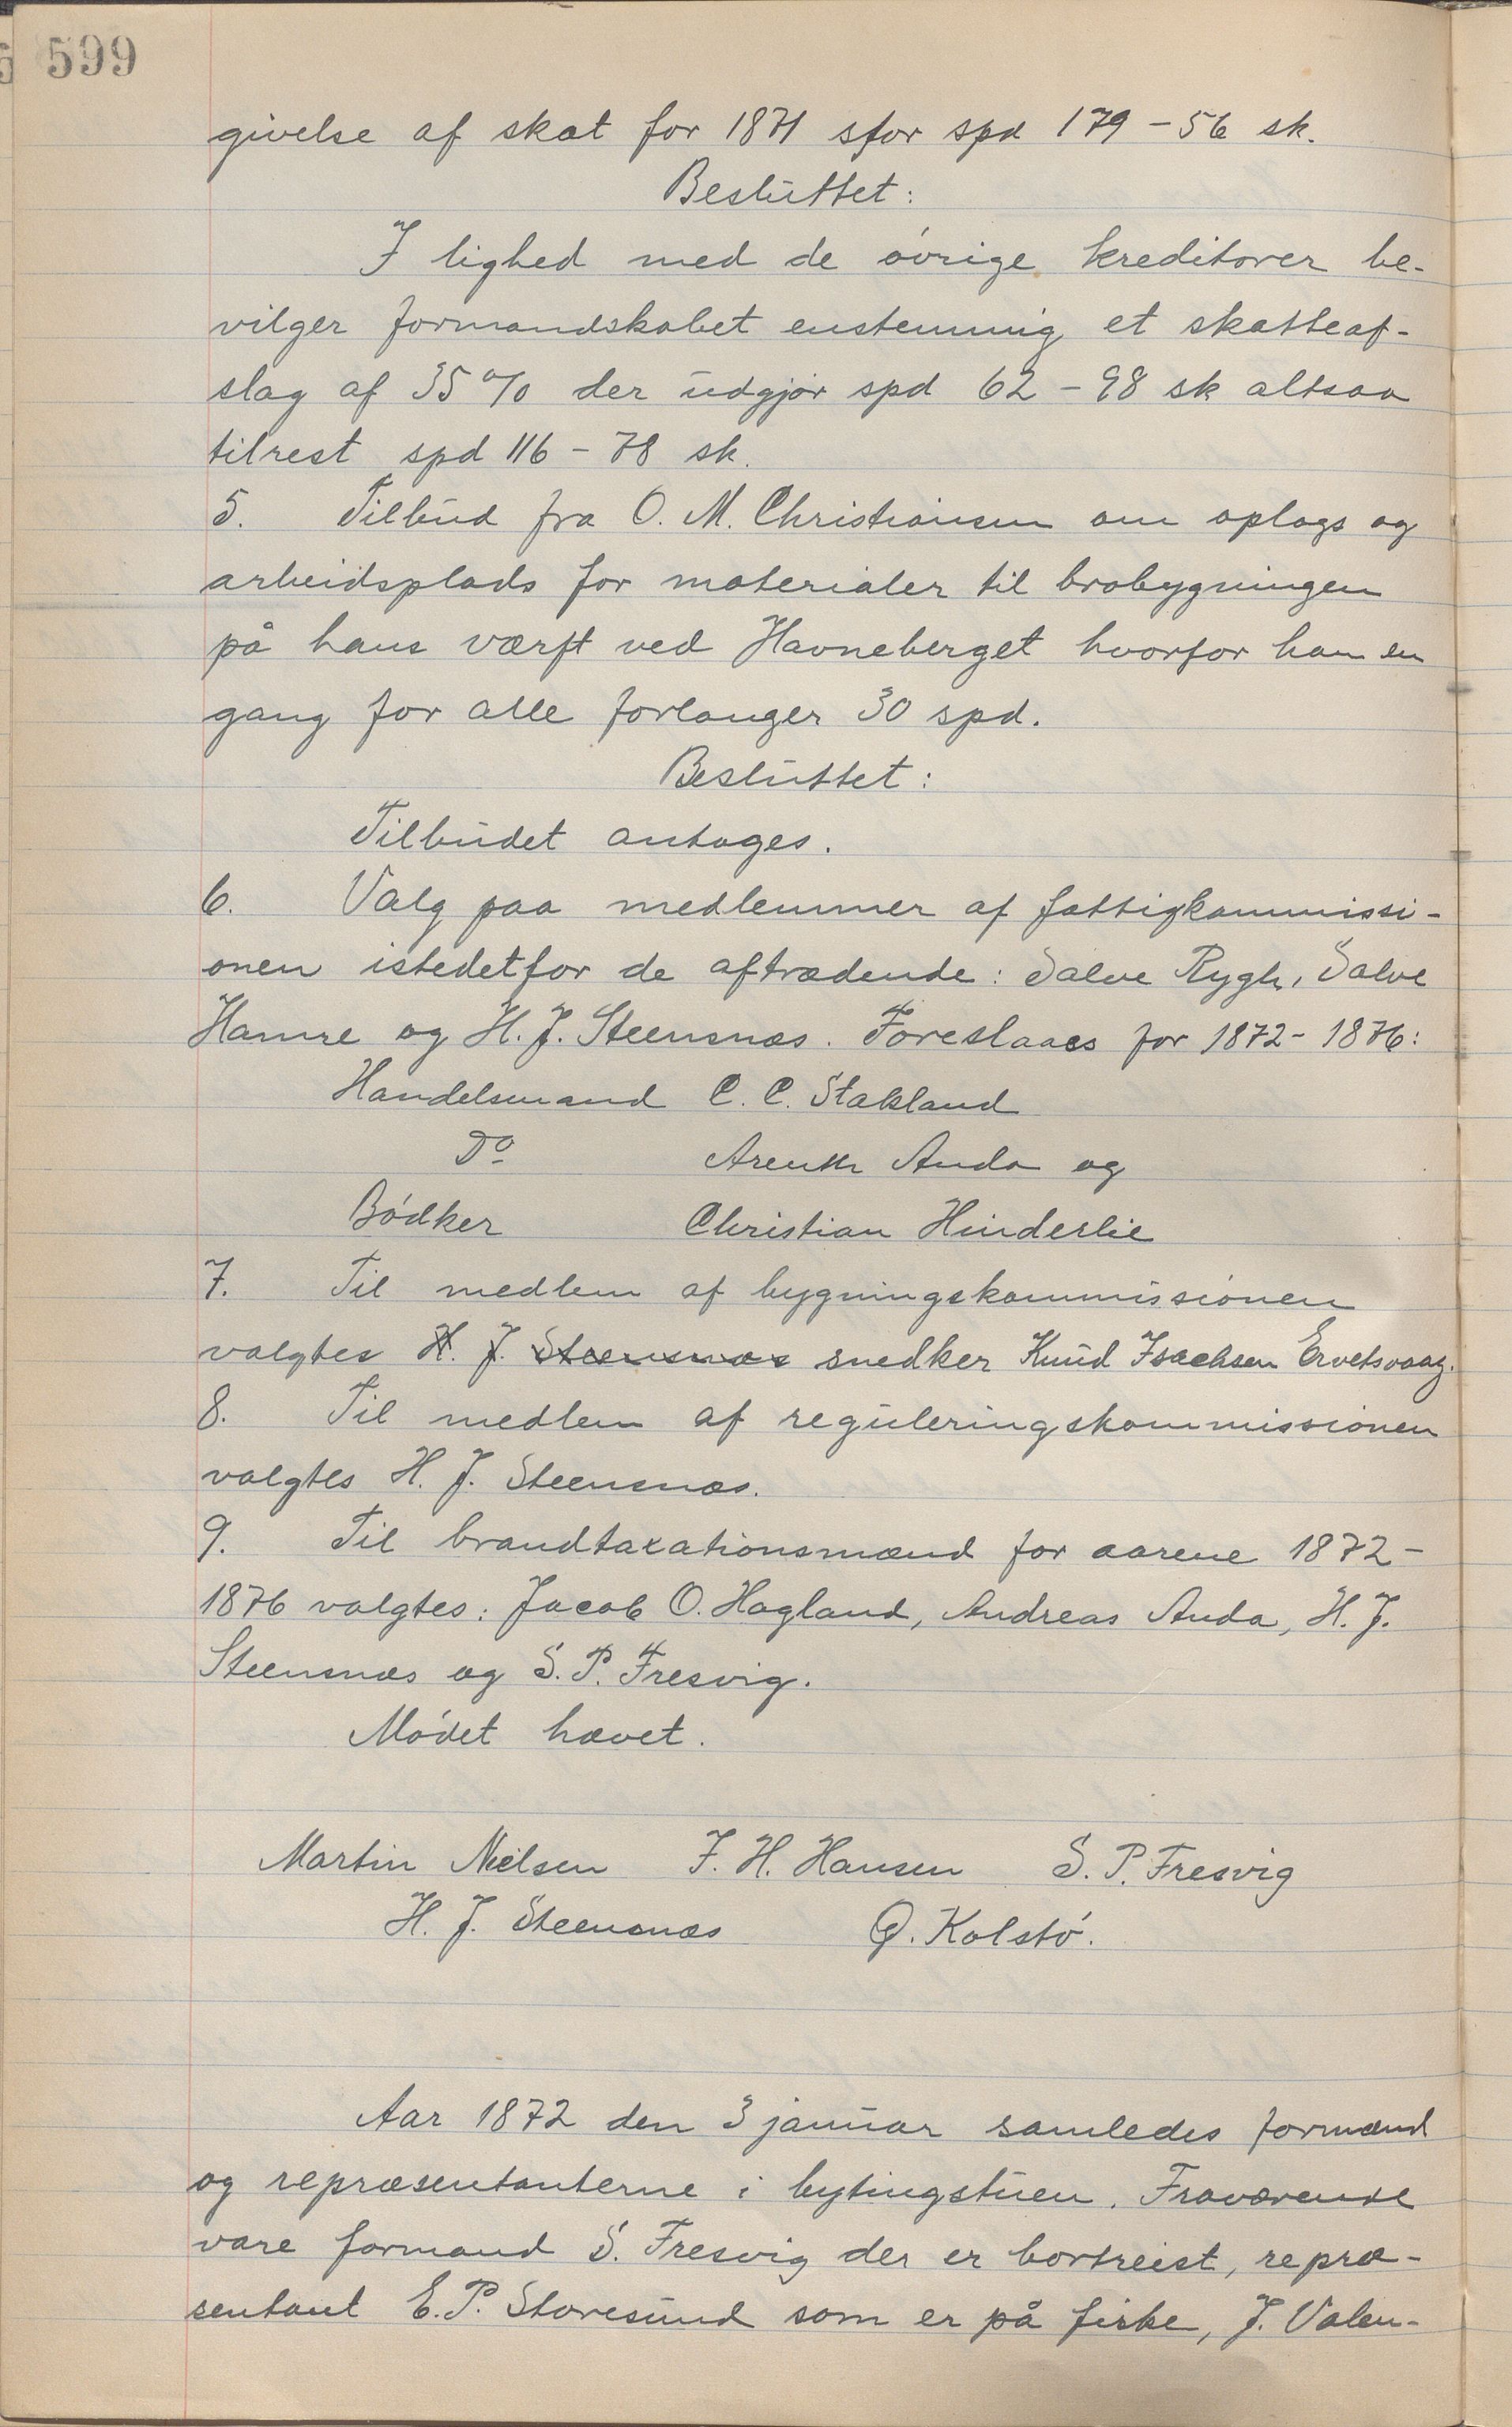 599
givelse af skat for 1871 sfor spd 179 - 56 sk.
Besluttet:
I lighed med de øvrige kreditorer be-
vilger formandskabet enstemmig et skatteaf-
slag af 35 % der udgjør spd 62 - 98 sk altsaa
tilrest spd 116 - 78 sk.
5. Tilbud fra O. M. Christiansen om oplags og
arbeidsplads for materialer til brobygningen
på hans værft ved Havneberget hvorfor han en
gang for alle forlanger 30 spd.
Besluttet:
Tilbudet antages.
6. Valg paa medlemmer af fattigkommissi-
onen istedetfor de aftrædende: Salve Rygh, Salve
Hamre og H. J. Steensnæs. Foreslaaes for 1872 - 1876:
Handelsmand C. C. Stakland
Do Arenth Anda og
Bødker Christian Hinderlie
7. Til medlem af bygningskommissionen
valgtes H. J. Steensnæs snedker Knud Isachsen Ervetsvaag.
8. Til medlem af reguleringskommissionen
valgtes H. J. Steensnæs.
9. Til brandtaxationsmænd for aarene 1872 -
1876 valgtes: Jacob O. Hagland, Andreas Anda, H. J.
Steensnæs og S. P. Fresvig.
Mødet hævet.
Martin Nielsen J. H. Hansen S. P. Fresvig
H. J. Steensnæs Q. Kolstø.
Aar 1872 den 3 januar samledes formænd
og repræsentanterne i bytingstuen. Fraværende
vare formand S. Fresvig der er bortreist, repræ-
sentant E. P. Storesund som er på fiske, J. Valen-